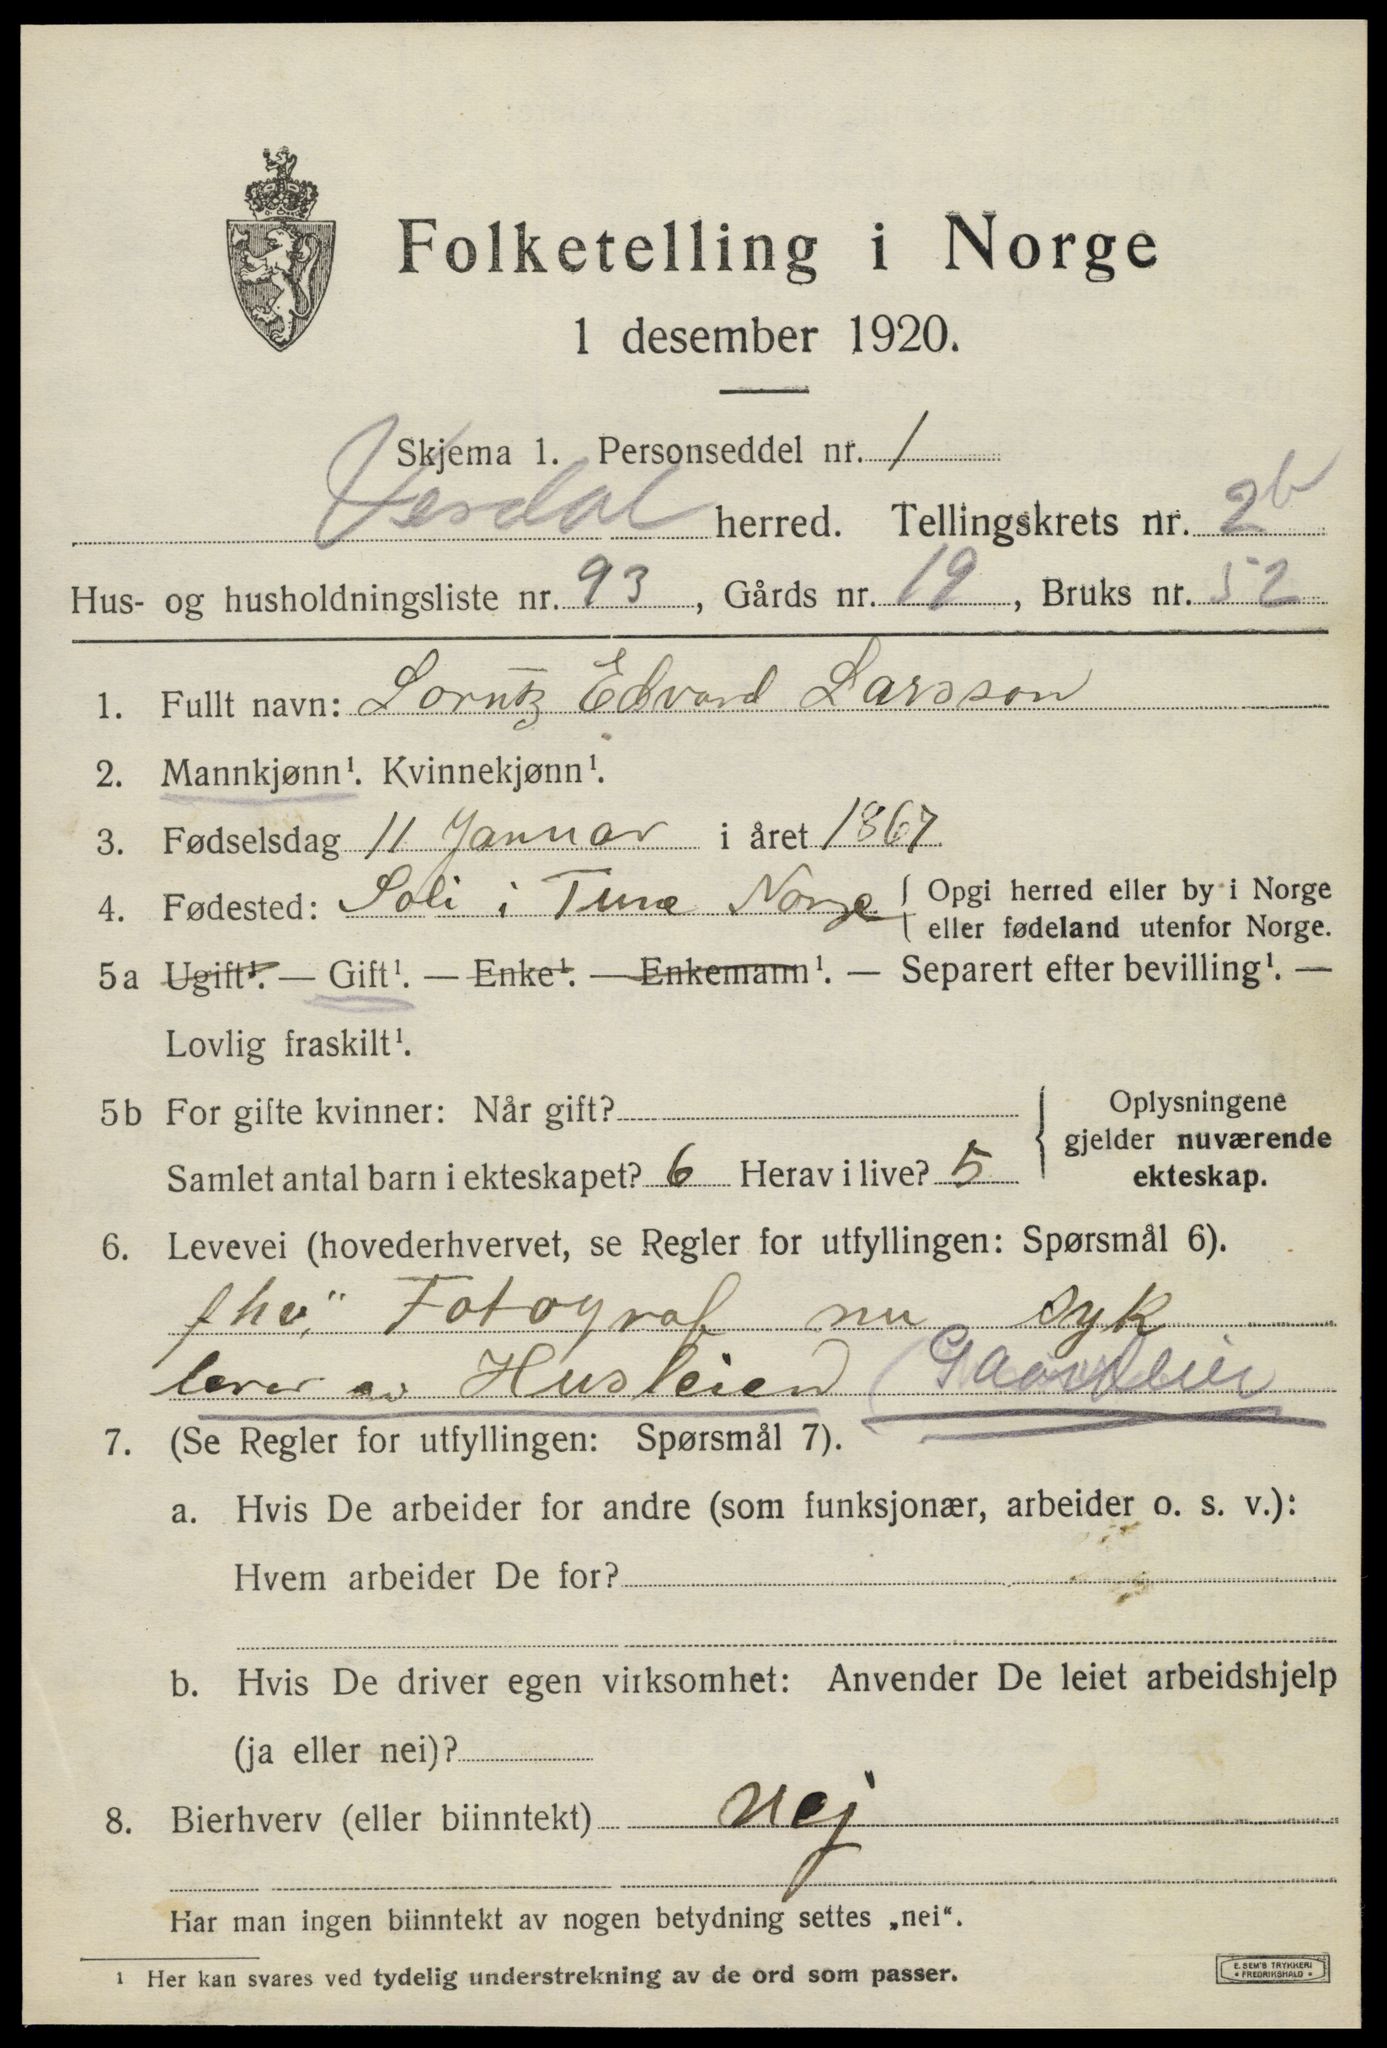 Folketelling i Norge
1 desember 1920.
Skjema 1. Personseddel nr. 1
Verdal herred. Tellingskrets nr. 2b
Hus- og husholdningsliste nr. 93, Gårds nr. 19, Bruks nr. 52
1. Fullt navn: Lorntz Edvard Larsson
2. Mannkjønn¹. Kvinnekjønn¹.
3. Fødselsdag 11 Januar i året 1867
4. Fødested: Soli i Tune Norge { Opgi herred eller by i Norge
eller fødeland utenfor Norge.
5a Ugift¹. — Gift¹. — Enke¹. — Enkemann¹. — Separert efter bevilling¹. —
Lovlig fraskilt¹.
5b For gifte kvinner: Når gift?
Samlet antal barn i ekteskapet? 6 Herav i live? 5
Oplysningene
gjelder nuværende
ekteskap.
6. Levevei (hovederhvervet, se Regler for utfyllingen: Spørsmål 6).
fhv. Fotograf nu syk
lever av Husleien
7. (Se Regler for utfyllingen: Spørsmål 7).
a. Hvis De arbeider for andre (som funksjonær, arbeider o. s. v.):
Hvem arbeider De for?
b. Hvis De driver egen virksomhet: Anvender De leiet arbeidshjelp
(ja eller nei)?
8. Bierhverv (eller biinntekt) Nej
Har man ingen biinntekt av nogen betydning settes „nei“.
¹ Her kan svares ved tydelig understrekning av de ord som passer.
E. SEM'S TRYKKERI
• FREDRIKSHALD •